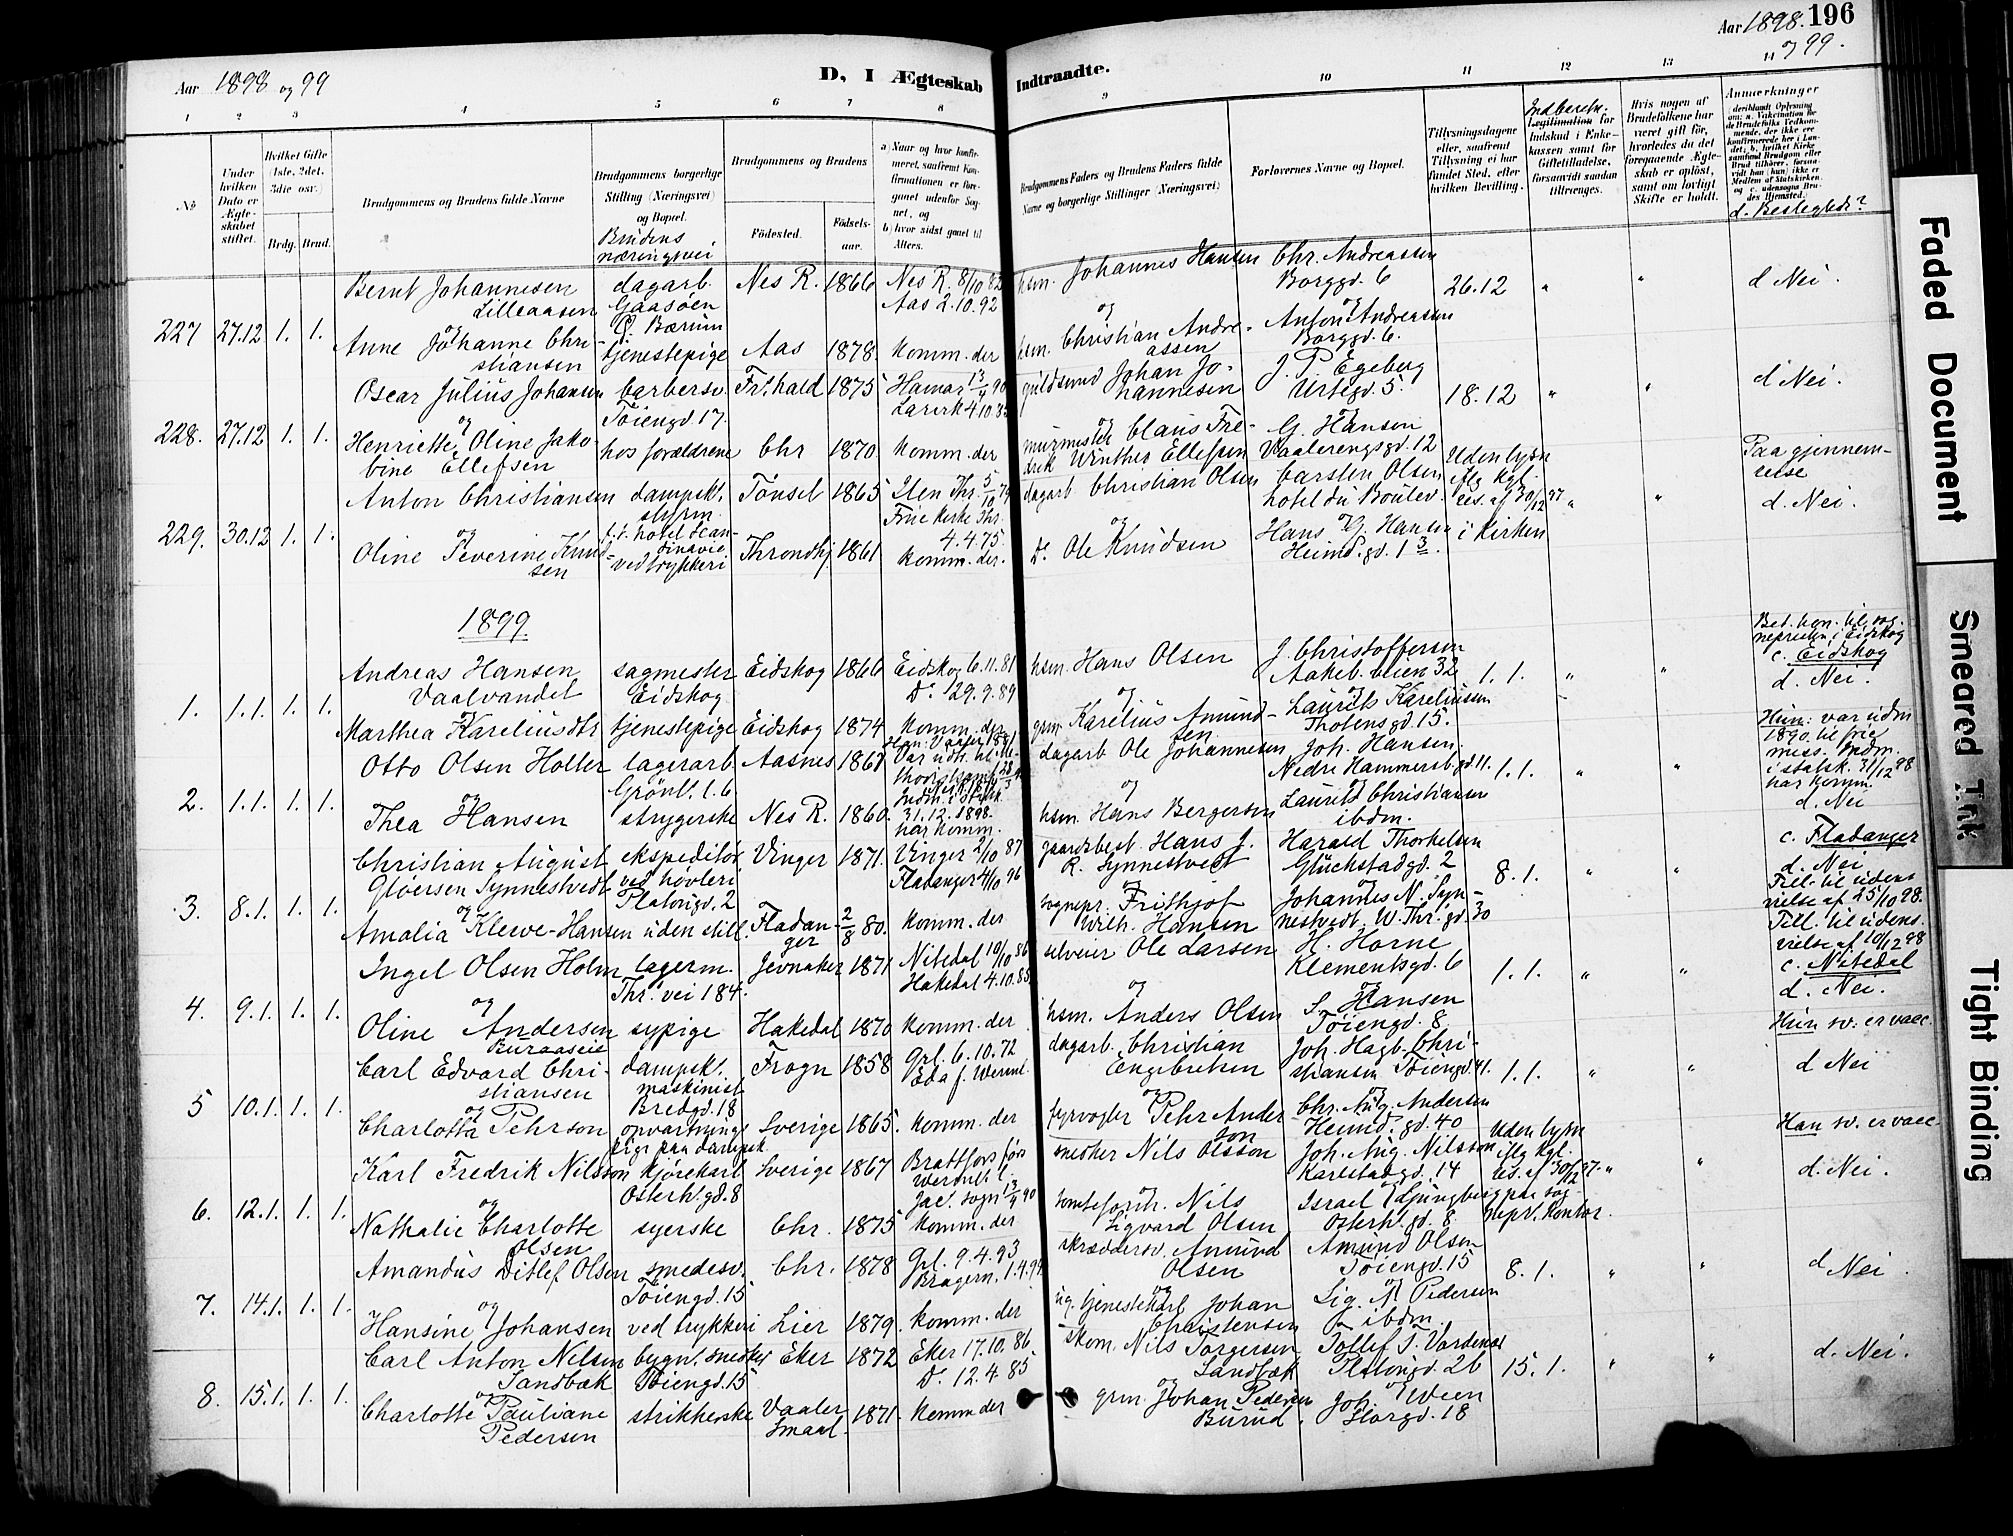 Aar 1898 og 99
D, I Ægteskab
Indtraadte.
Aar 1898. 196
og 99.
1 2 3 4 5 6 7 8 9 10 11 12 13 14
No
Under hvilken Dato er Ægteskabet stiftet.
Hvilket Gifte (1ste, 2det, 3die osv.)
Brdg. Brud.
Brudgommens og Brudens fulde Navne
Brudgommens borgerlige Stilling (Næringsvei) og Bopæl.
Brudens næringsvei
Brudgommens og Brudens
Fødested. Fødselsaar.
a) Naar og hvor konfirmeret, saafremt Konfirmationen er foregaaet udenfor Sognet, og
b) hvor sidst gaaet til Alters.
Brudgommens Faders og Brudens Faders fulde Navne og borgerlige Stillinger (Næringsvei)
Forlovernes Navne og Bopæl.
Tillysningsdagene eller, saafremt Tillysning ei har fundet Sted, efter hvilken Bevilling.
Indberetn.
Legitimation for Indskud i Enkekassen samt for Giftetilladelse, forsaavidt saadan tiltrænges.
Hvis nogen af Brudefolkene har været gift før, hvorledes da det foregaaende Ægteskab er opløst, samt om lovligt Skifte er holdt.
Anmerkninger
deriblandt Oplysning om: a. Vakcination for de Brudefolks Vedkommende, der ikke ere konfirmerede her i Landet; b, hvilket Kirkesamfund Brudgom eller Brud tilhører, forsaavidt han (hun) ikke er Medlem af Statskirken og c, udensogns Brudes Hjemsted.)
d. Beslegtede?
Bernt Johannesen dagarb. Nes R. 1866 Nes R. 8/10 82 hsm. Johannes Hansen Chr. Andreassen
Lilleaasen Gaasøen Aas 2.10.92 Borggd. 6 26.12 " " d Nei.
227 27.12 1. 1. og Ø. Bærum og Anton Andreassen
Anne Johanne Chri- tjenestepige Aas 1878. komm. der hsm. Christian Andre- Borggd. 6.
stiansen assen
Oscar Julius Johansen barbersv. Fr.hald 1875 Hamar 13/4 90 guldsmed Johan Jo- J. P. Egeberg
Tøiengd 17. Larvik 4.10.85 hannesen Urtegd. 5. 18.12 " " d Nei.
228. 27.12 1. 1. og
Henriette Oline Jako- hos forældrene Chr 1870 komm. der murmester Claus Fre- G. Hansen
bine Ellefsen drik Winther Ellefsen Vaalerengsgd. 12
Anton Christiansen dampsk. Tønset 1865 Ilen Thr. 5/10 79 dagarb Christian Olsen Carsten Olsen Uden lysn Paa gjennem-
styrm. Frue kirke Thr. hotel du Boulev. iflg kgl. reise
229. 30.12 1. 1. og t.i. hotel Scan- 4.4.75. og res. af 30/12 37 " " d. Nei.
Oline Severine Knud- dinavie Throndhj 1861 komm. der. Do. Ole Knudsen Hans G. Hansen i kirken
sen ved trykkeri Heimd.gd. 13.
1899
Andreas Hansen sagmester Eidskog 1866 Eidskog 6.11.81 hsm. Hans Olsen J. Christoffersen Bet. hen. til sog-
Vaalvandet Eidskog Do. 29.9.89 Aakeb.veien 32 1.1. " " nepresten i Eidskog
1. 1.1. 1. 1. og og Laurits Kareliussen c. Eidskog
Marthea Kareliusdtr tjenestepige Eidskog 1874 komm. der grm Karelius Amund- Thotensgd. 15. d. Nei.
sen
Otto Olsen Holter lagerarb. Aasnes 1867 Han: Vaaler 1881 dagarb Ole Johannesen Joh. Hansen Hun: var udm
Grønl. l. 6 Var udtr. til Nedre Hammersb.gd 11. 1.1. " " 1890 til frie
2. 1.1. 1. 1. og og Laurits Christiansen miss. Indm.
Thea Hansen strygerske Nes R. 1860. Indm. i Statsk. 31.12.1898. hsm. Hans Bergersen ibdm. i statsk. 31/12 98
har komm. har komm.
d. Nei
Christian August ekspeditør Vinger 1871. Vinger 2/10 87 gaardbest. Hans J. Harald Thorkelsen c. Fladanger
Gløersen Synnestvedt ved høvleri Fladanger 4/10 96 R. Synnestvedt Glückstadgd. 2 8.1. " " d. Nei
3. 8.1. 1. 1. og Platousgd. 2 og Johannes N. Syn- Till. til udens
Amalia Klewe-Hansen uden still. Fladan- 2/8 80. komm. der sognepr. Frithjof nestvedt, W. Thr. gd. 30 vielse af 25/10 98.
ger Wilh. Hansen
Ingel Olsen Holm lagerm. Jevnaker 1871 Nitedal 10/10 86 selveier Ole Larsen H. Horne Till. til udens.
Thr. vei 184. Hakedal 4.10.85 Klementsgd. 6 1.1. " " vielse af 10/12 98
4. 9.1. 1. 1. og og S. Hansen c. Nitedal
Oline Andersen sypige Hakedal 1870 komm. der hsm. Anders Olsen Tøiengd. 8 d. Nei.
Buraaseie
Carl Edvard Chri- dampsk. Frogn 1858 Grl. 6.10.72 dagarb. Christian Joh. Hagb. Chri- Hun sv. er vacc.
stiansen maskinist Eda f. Werml. Engebretsen stiansen Tøiengd 41. 1.1. " " d Nei
5 10.1. 1. 1. og Bredgd. 18 og Chr. Aug. Andersen
Charlotta Pehrson opvartnings- Sverige 1865. komm. der fyrvogter Pehr Ander- Heimd. gd. 40
pige paa dampsk. son
Karl Fredrik Nilsson kjørekarl Sverige 1867 Brattfors førs snedker Nils Olsson Joh. Aug. Nilsson Uden lysn Han sv. er vacc.
Osterh.gd. 8 Werml. l. Karlstadgd. 14 iflg kgl. res. af 30/12 37. " " d. Nei.
6. 12.1. 1. 1. og Jac. sogn 13/4 90 og Israel Ljungberg paa sog-
Nathalie Charlotte syerske Chr. 1875 komm. der Nils Osterh. gd. 8. nepr. kontor.
Olsen Sigvard Olsen
Amandus Ditlef Olsen smedesv. Chr. 1878 Grl. 9.4.93 skræddersv. Amund Amund Olsen
Tøiengd. 15 Bragern. 1.4.94 Olsen Tøiengd. 15 8.1. " " d Nei.
7. 14.1. 1. 1. og og Sig. M. Pedersen
Hansine Johansen ved trykkeri Lier 1879. komm. der ug. tjenestekarl Johan ibdm.
Christensen
Carl Anton Nelsen bygn. snedker Eker 1872 Eker 17.10.86 skom. Nils Torgersen Tollef T. Vardenær
Sandbæk Tøiengd. 15 Do. 12.4.85 Sandbæk Platousgd. 26 15.1. " " d. Nei.
8. 15.1. 1. 1. og og
Charlotte Pauliane strikkerske Vaaler 1871. komm der grm. Johan Pedersen Joh. Ween
Pedersen Smaal. Burud Storgd. 18
Faded Document
Smeared Ink
Tight Binding